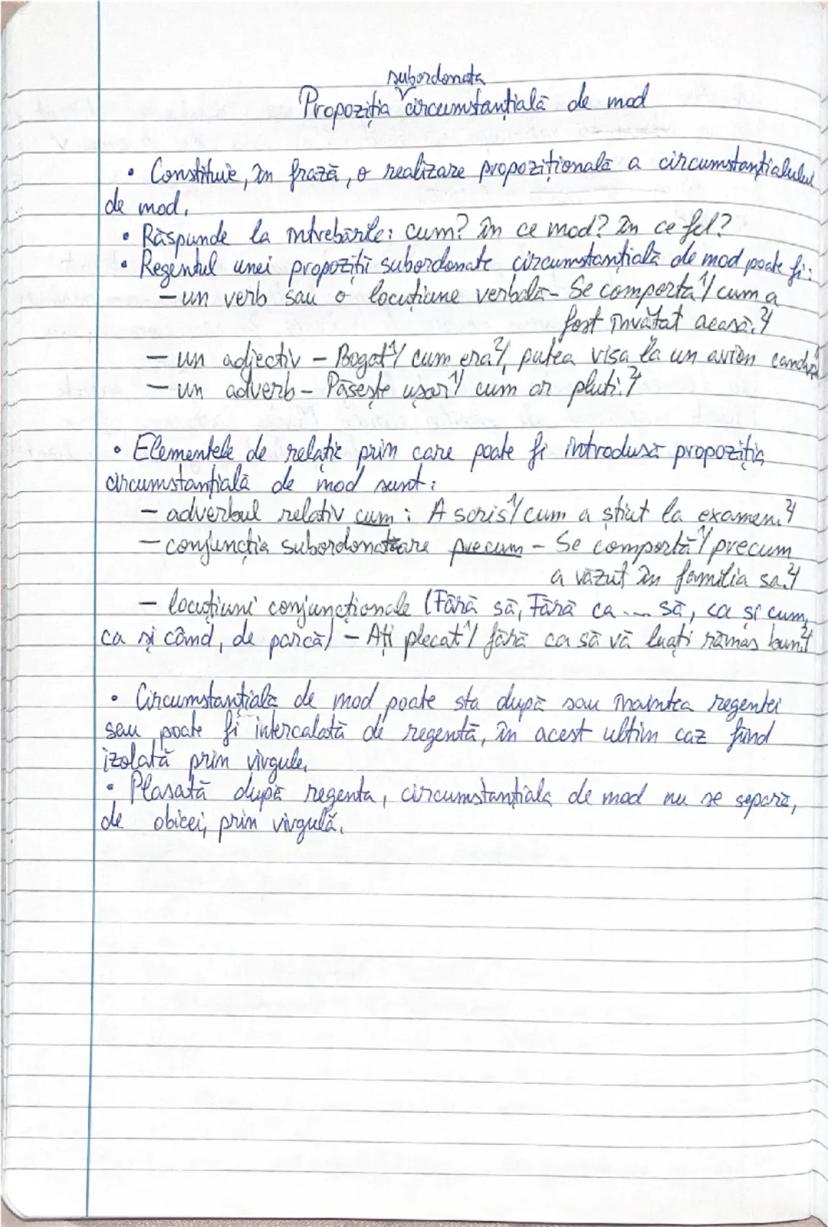 subordonata
Propoziția circumstanțială de mod
• Constituie, în frază, o realizare propozițională a circumstanțialului
de mod.
• Răspunde la întrebările: cum? în ce mod? în ce fel?
• Regentul unei propoziții subordonate circumstanțială de mod poate fi:
– un verb sau o locuțiune verbală – Se comportă¹/ cum a
fost învățat acasă.²/
– un adjectiv – Bogat¹/ cum era²/, putea visa la un avion
– un adverb – Pășește ușor¹/ cum ar pluti.²/
• Elementele de relație prin care poate fi introdusă propoziția
circumstanțială de mod sunt:
– adverbul relativ cum : A scris¹/ cum a știut la examen.²/
– conjuncția subordonatoare precum – Se comportă¹/ precum
a văzut în familia sa.²/
– locuțiuni conjuncționale (Fără să, Fără ca ... să, ca și cum,
ca și când, de parcă) – Ați plecat¹/ fără ca să vă luați rămas bun.²/
• Circumstanțială de mod poate sta după sau înaintea regentei
sau poate fi intercalată de regentă, în acest ultim caz fiind
izolată prin virgule.
• Plasată după regenta, circumstanțiala de mod nu se separă,
de obicei, prin virgulă.